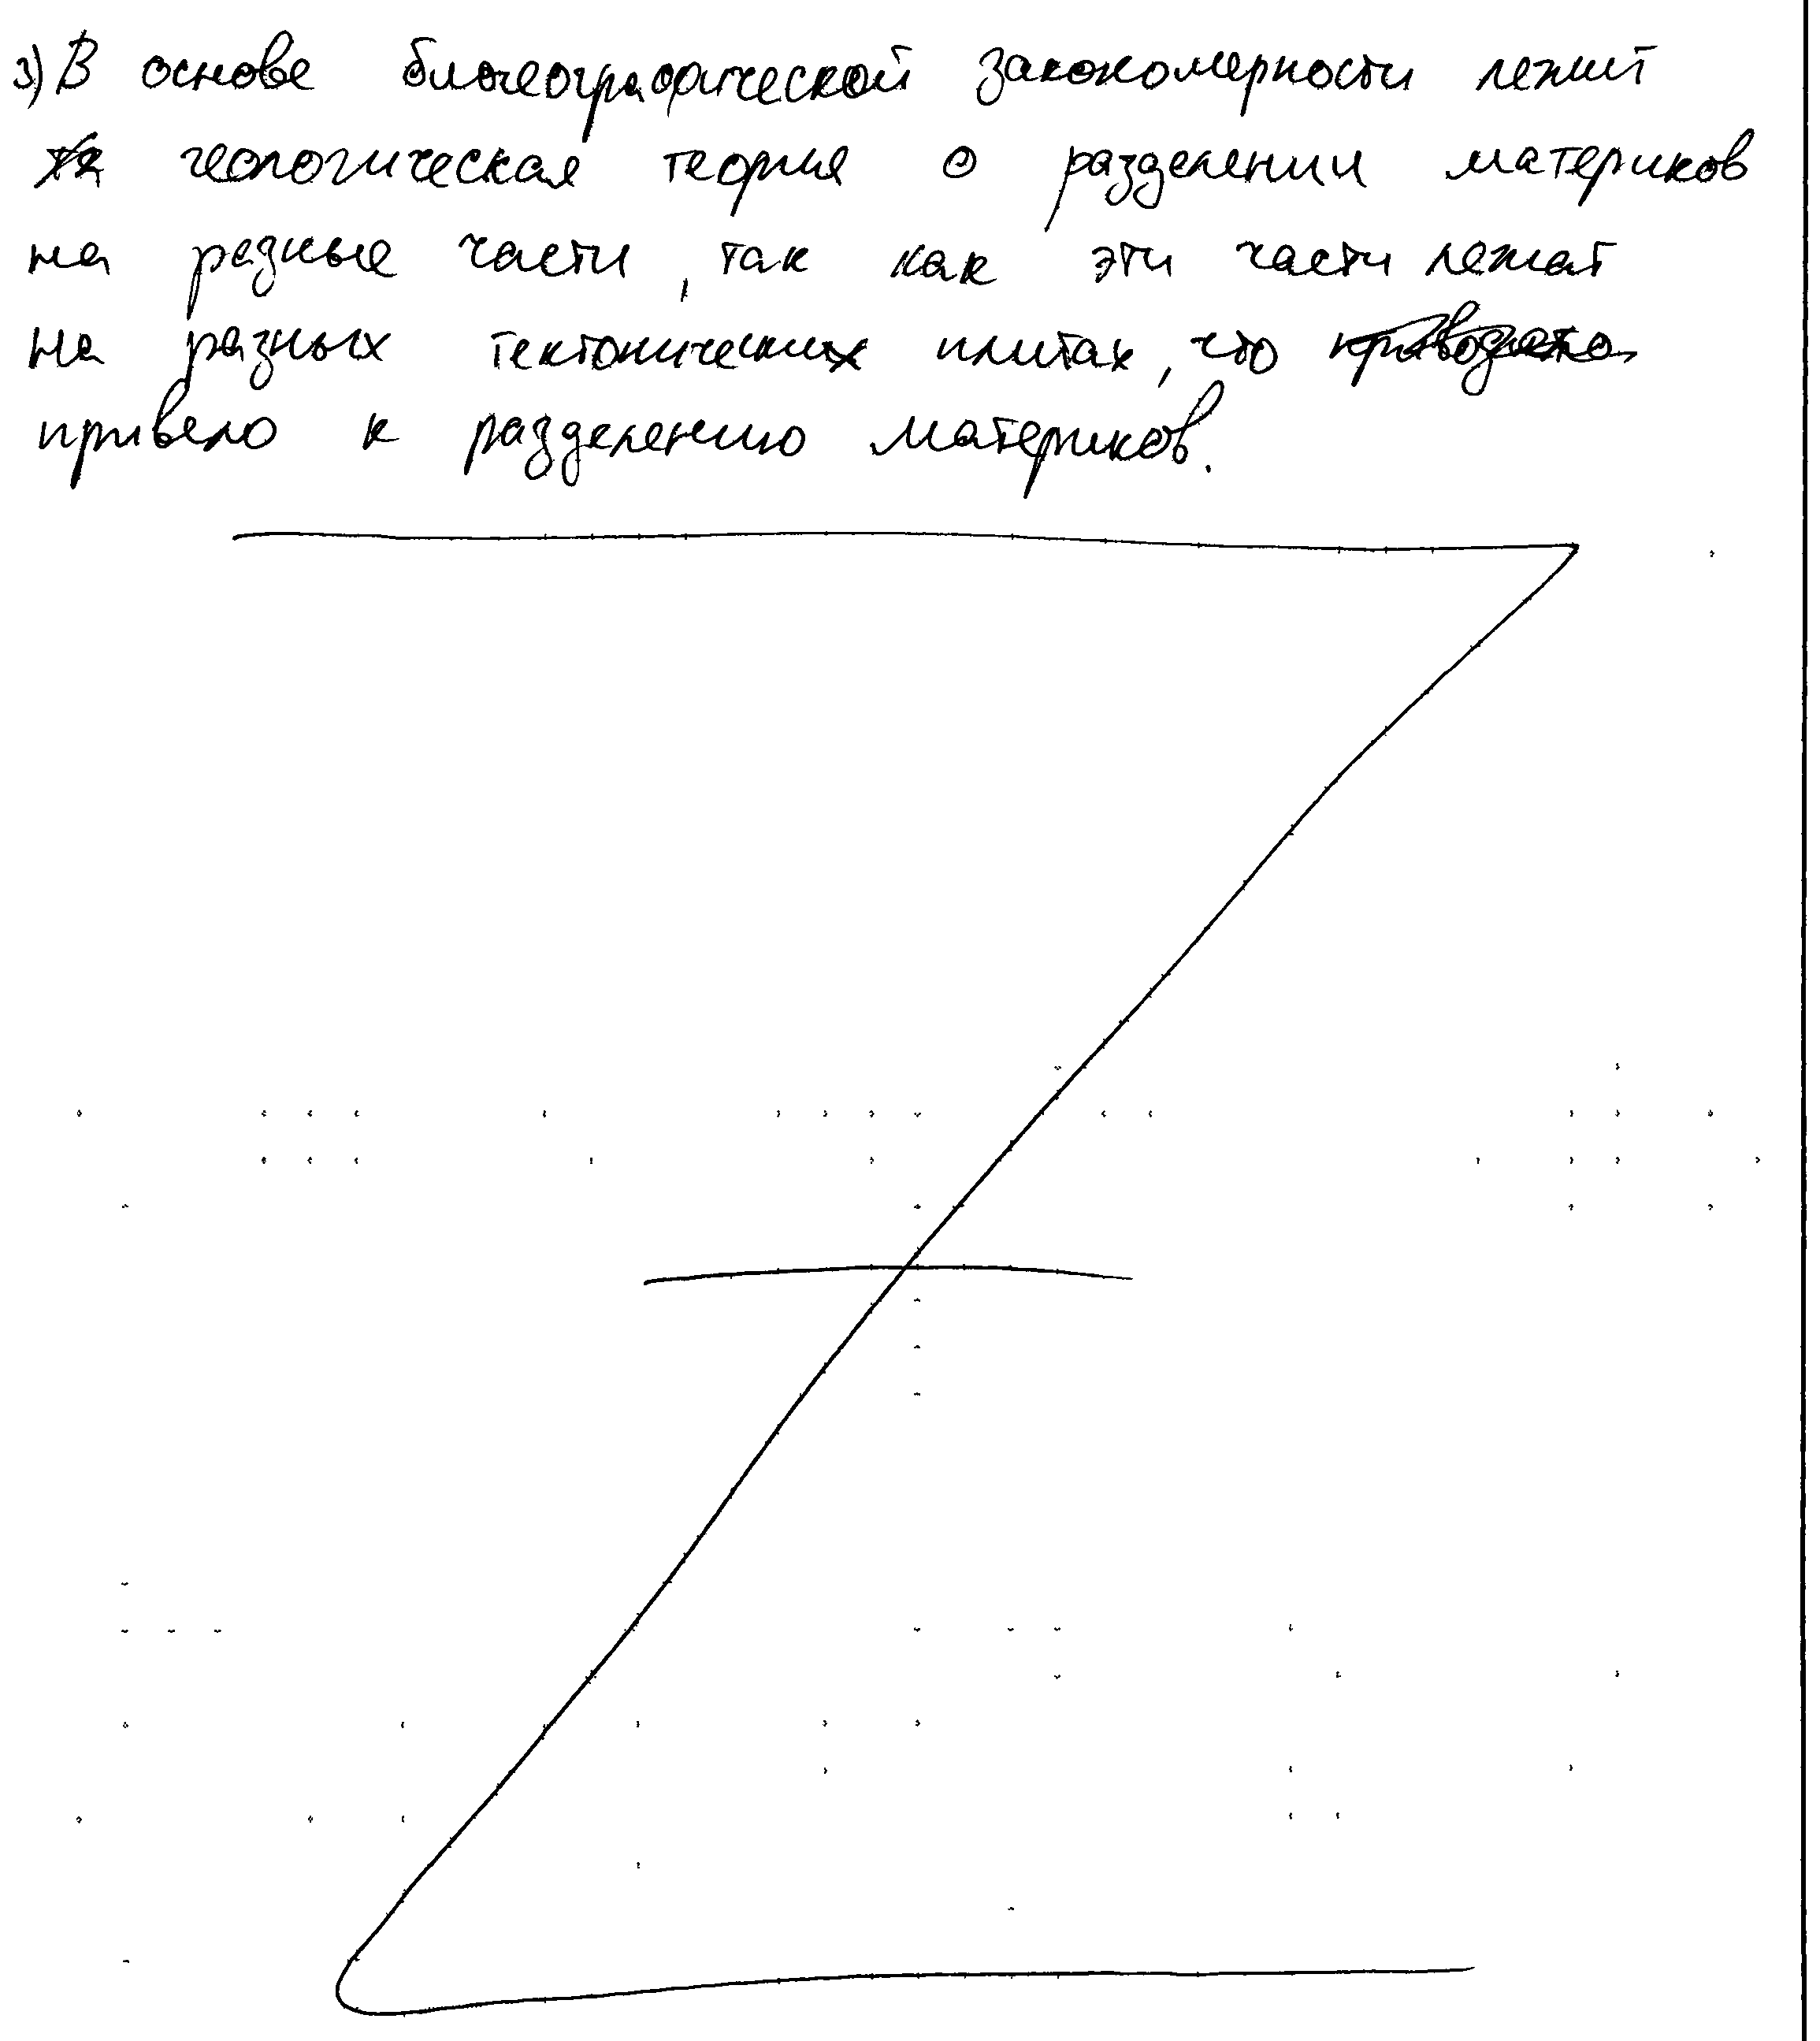 3) В основе биогеографической закономерности лежит
геологическая теория о разделении материков
на разные части, так как эти части лежат
на разных тектонических плитах, что
привело к разделению материков.